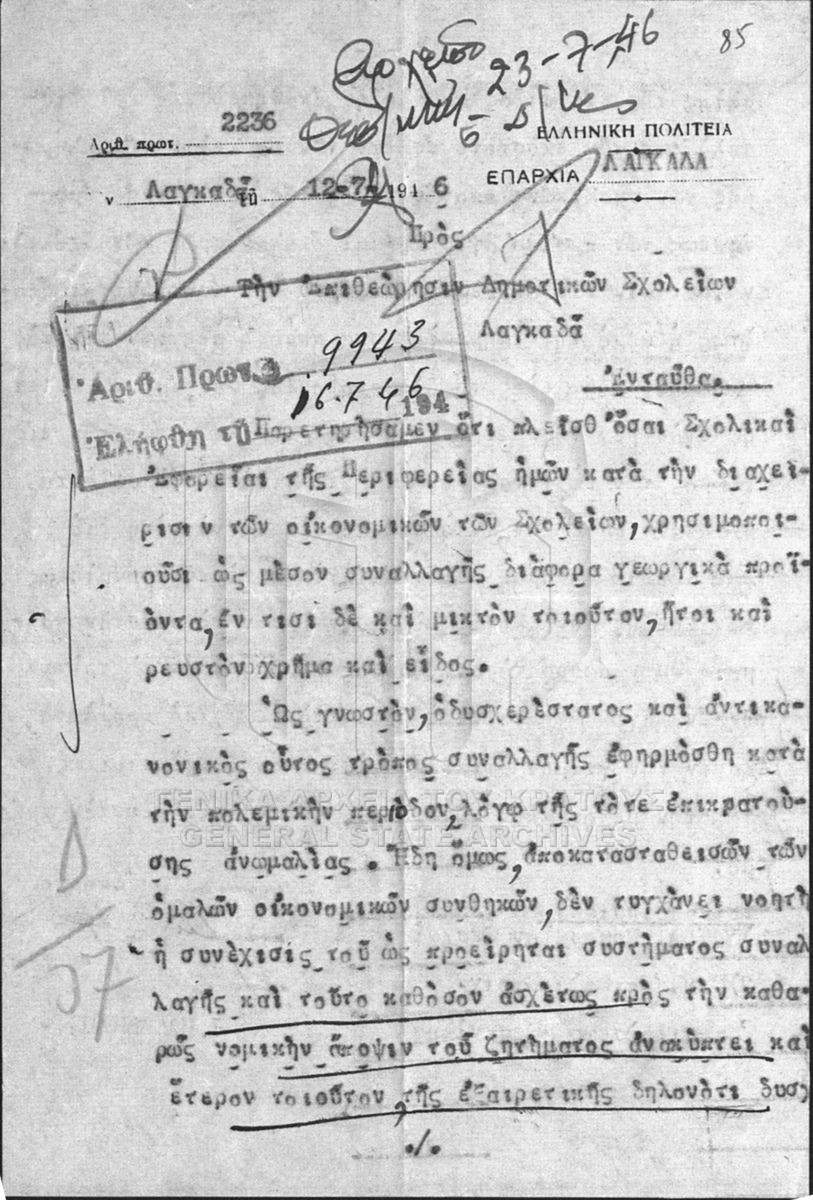 85
23-7-46
Ἀριθ. πρωτ. 2236
ΕΛΛΗΝΙΚΗ ΠΟΛΙΤΕΙΑ
ΕΠΑΡΧΙΑ ΛΑΓΚΑΔΑ
Ἐν Λαγκαδᾷ τῇ 12-7-1946
Πρὸς
Τὴν Ἐπιθεώρησιν Δημοτικῶν Σχολείων
Λαγκαδᾶ
Ἐνταῦθα.
Ἀριθ. Πρωτ. 9943
Ἐλήφθη τῇ 16.7.46 194
Παρετηρήσαμεν ὅτι πλεῖσθ ὅσαι Σχολικαὶ
Ἐφορεῖαι τῆς Περιφερείας ἡμῶν κατὰ τὴν διαχεί-
ρισιν τῶν οἰκονομικῶν τῶν Σχολείων, χρησιμοποι-
οῦσι ὡς μὲσον συναλλαγῆς διὰφορα γεωργικὰ προϊ-
όντα, ἐν τισι δὲ καὶ μικτὸν τοιοῦτον, ἤτοι καὶ
ρευστὸν χρῆμα καὶ εἶδος.
Ὡς γνωστὸν, ὁ δυσχερὲστατος καὶ ἀντικα-
νονικὸς οὗτος τρὸπος συναλλαγῆς ἐφηρμὸσθη κατὰ
τὴν πολεμικὴν περίοδον, λὸγῳ τῆς τὸτε ἐπικρατοὺ-
σης ἀνωμαλὶας. Ἤδη ὅμως, ἀποκατασταθεισῶν τῶν
ὁμαλῶν οἰκονομικῶν συνθηκῶν, δὲν τυγχὰνει νοητὴ
ἡ συνὲχισὶς τοῦ ὡς προεὶρηται συστὴματος συναλ
λαγῆς καὶ τοῦτο καθὸσον ἀσχὲτως πρὸς τὴν καθα-
ρῶς νομικὴν ἄποψιν τοῦ ζητὴματος ἀνακὺπτει καὶ
ἕτερον τοιοῦτον, τῆς ἐξαιρετικῆς δηλονὸτι δυσχ
./.
ΓΕΝΙΚΑ ΑΡΧΕΙΑ ΤΟΥ ΚΡΑΤΟΥΣ
GENERAL STATE ARCHIVES